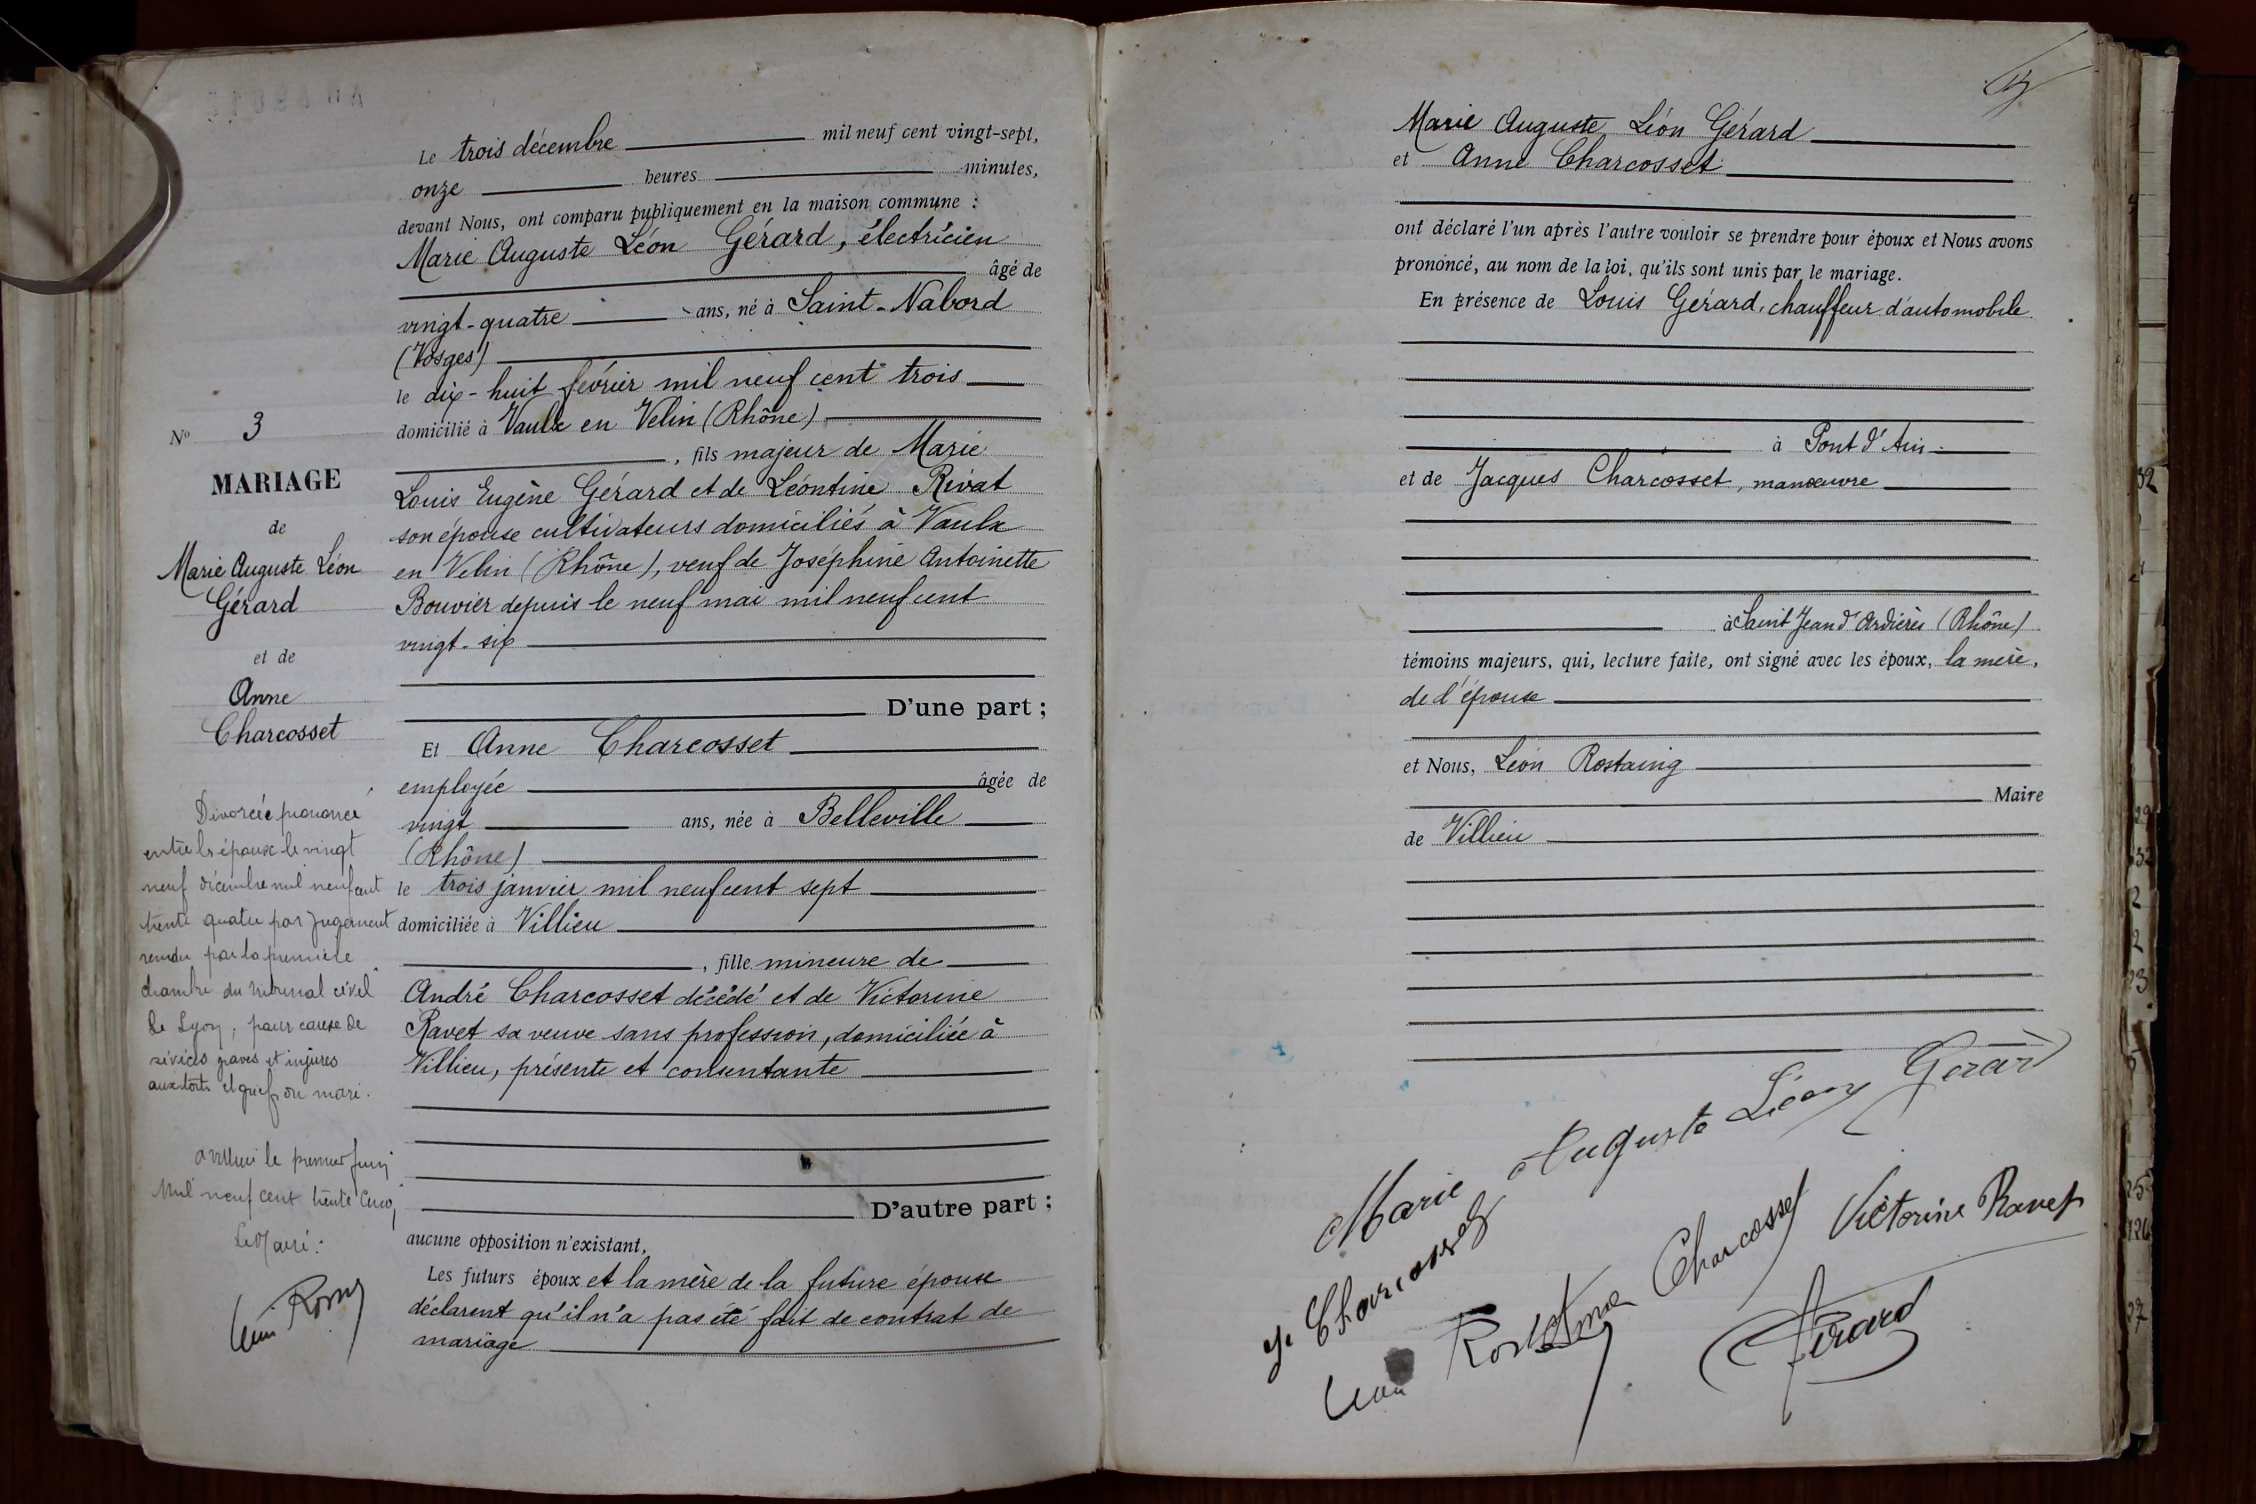 Le trois décembre mil neuf cent vingt-sept,
onze heures minutes,
devant Nous, ont comparu publiquement en la maison commune :
Marie Auguste Léon Gérard, électricien
âgé de
vingt-quatre ans, né à Saint-Nabord
(Vosges)
le dix-huit février mil neuf cent trois
domicilié à Vaulx en Velin (Rhône)
, fils majeur de Marie
Louis Eugène Gérard et de Léontine Rivat
son épouse cultivateurs domiciliés à Vaulx
en Velin (Rhône), veuf de Joséphine Antoinette
Bouvier depuis le neuf mai mil neuf cent
vingt-six
D'une part ;
Et Anne Charcosset
employée âgée de
vingt ans, née à Belleville
(Rhône)
le trois janvier mil neuf cent sept
domiciliée à Villieu
, fille mineure de
André Charcosset décédé et de Victorine
Ravet sa veuve sans profession, domiciliée à
Villieu, présente et consentante
D'autre part ;
aucune opposition n'existant,
Les futurs époux et la mère de la future épouse
déclarent qu'il n'a pas été fait de contrat de
mariage
No 3
MARIAGE
de
Marie Auguste Léon
Gérard
et de
Anne
Charcosset
Divorcée prononcé
entre les époux le vingt
neuf décembre mil neuf cent
trente quatre par jugement
rendu par la première
chambre du tribunal civil
de Lyon, pour cause de
sévices graves et injures
aux torts et griefs du mari.
le premier Juin
Mil neuf cent trente cinq
Le Maire :
Marie Auguste Léon Gérard
et Anne Charcosset
ont déclaré l'un après l'autre vouloir se prendre pour époux et Nous avons
prononcé, au nom de la loi, qu'ils sont unis par le mariage.
En présence de Louis Gérard, chauffeur d'automobile
à Pont d'Ain
et de Jacques Charcosset, manœuvre
à Saint Jean d'Ardières (Rhône)
témoins majeurs, qui, lecture faite, ont signé avec les époux, la mère,
de l'épouse
et Nous, Léon Rostaing
Maire
de Villieu
Marie Auguste Léon Gérard
J. Charcosset
Charcosset
Victorine Ravet
Gérard